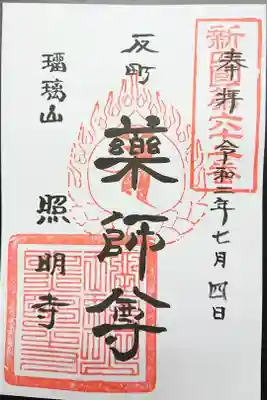 奉拝 令和二年七月四日
反町
藥師尊
瑠璃山
照明寺